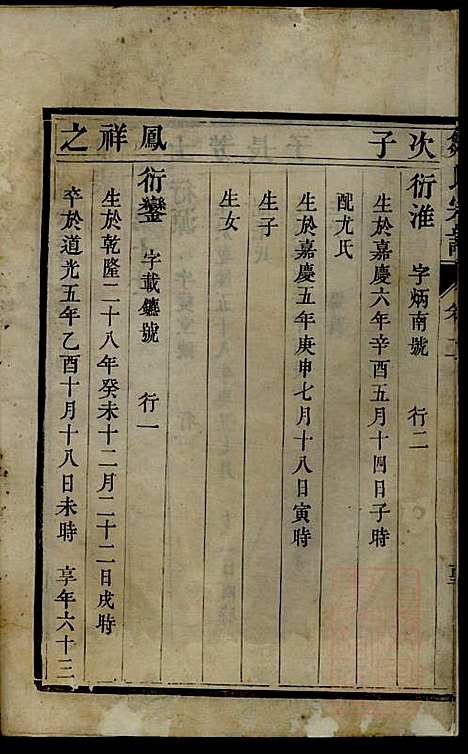 次子
衍淮 字炳南號 行二
生於嘉慶六年辛酉五月十四日子時
配尤氏
生於嘉慶五年庚申七月十八日寅時
生子
生女
鳳祥之
衍鑾 字載鑣號 行一
生於乾隆二十八年癸未十二月二十二日戌時
卒於道光五年乙酉十月十八日未時 享年六十三